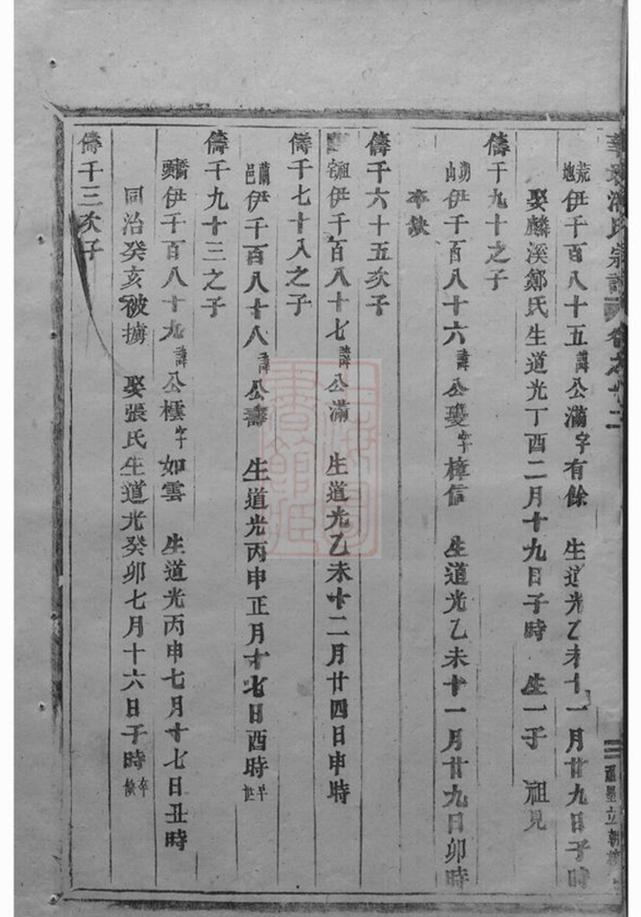 宗譜
荒地伊千百八十五諱公滿字有餘 生道光乙未十一月廿九日子時
娶麟溪鄭氏生道光丁酉二月十九日子時 生一子 祖見
儔千九十之子
伊千百八十六諱公字樟信 生道光乙未十一月廿九日卯時
卒缺
儔千六十五次子
伊千百八十七諱公滿 生道光乙未十二月廿四日申時
儔千七十入之子
蘭邑伊千百八十八諱公壽 生道光丙申正月十七日酉時
儔千九十三之子
伊千百八十九諱公標字如雲 生道光丙申七月十七日丑時
同治癸亥被擄 娶張氏生道光癸卯七月十六日子時
儔千三次子